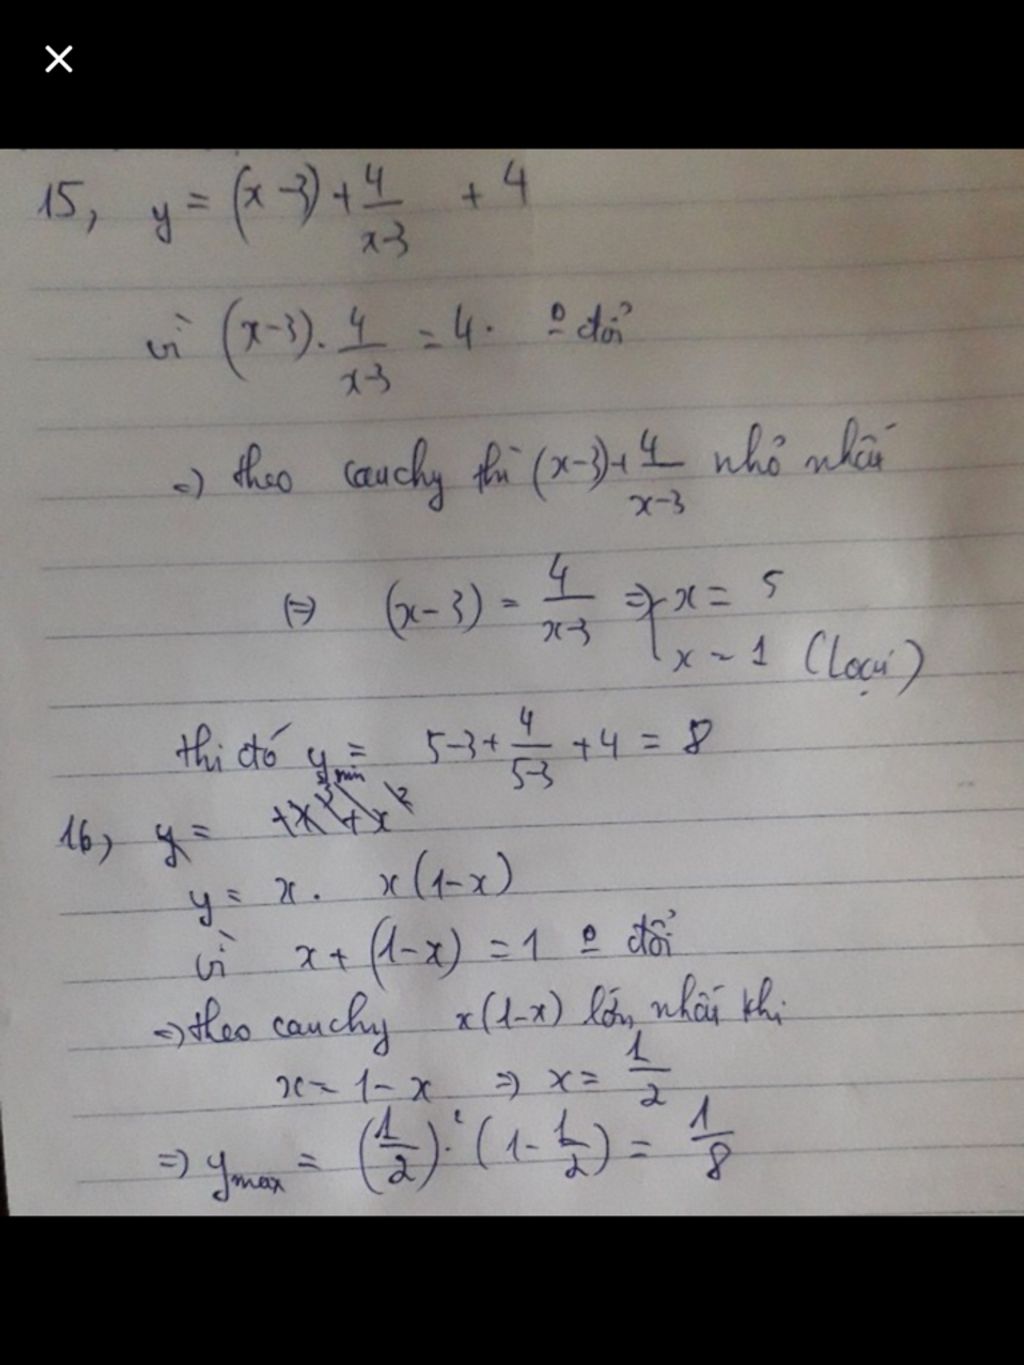 15, y = (x-3) + 4/(x-3) + 4
vì (x-3). 4/(x-3) = 4. o đổi
=> theo cauchy thì (x-3)+ 4/(x-3) nhỏ nhất
(=) (x-3) = 4/(x-3) => [ x = 5
x = 1 (loại)
thi đó ymin = 5-3+ 4/(5-3) +4 = 8
16) y =
y = x. x(1-x)
vì x + (1-x) = 1 o đổi
=> theo cauchy x(1-x) lớn nhất khi
x = 1 - x => x = 1/2
=> ymax = (1/2)².(1- 1/2) = 1/8